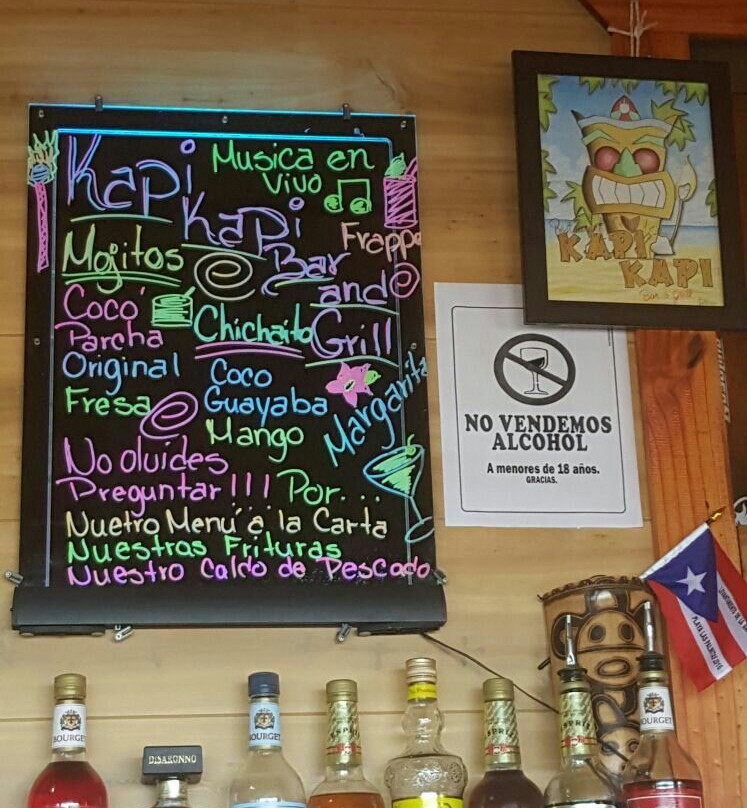 Kapi
Kapi
Bar
and
Grill
Musica en
Vivo
Frappe
Mojitos
Coco
Parcha
Original
Fresa
Chichaito
Coco
Guayaba
Mango
Margarita
No olvides
Preguntar!!! Por...
Nuetro Menú a la Carta
Nuestras Frituras
Nuestro Caldo de Pescado
KAPI
KAPI
NO VENDEMOS
ALCOHOL
A menores de 18 años.
GRACIAS.
BOURGET
DISARONNO
BOURGET
BOURGET